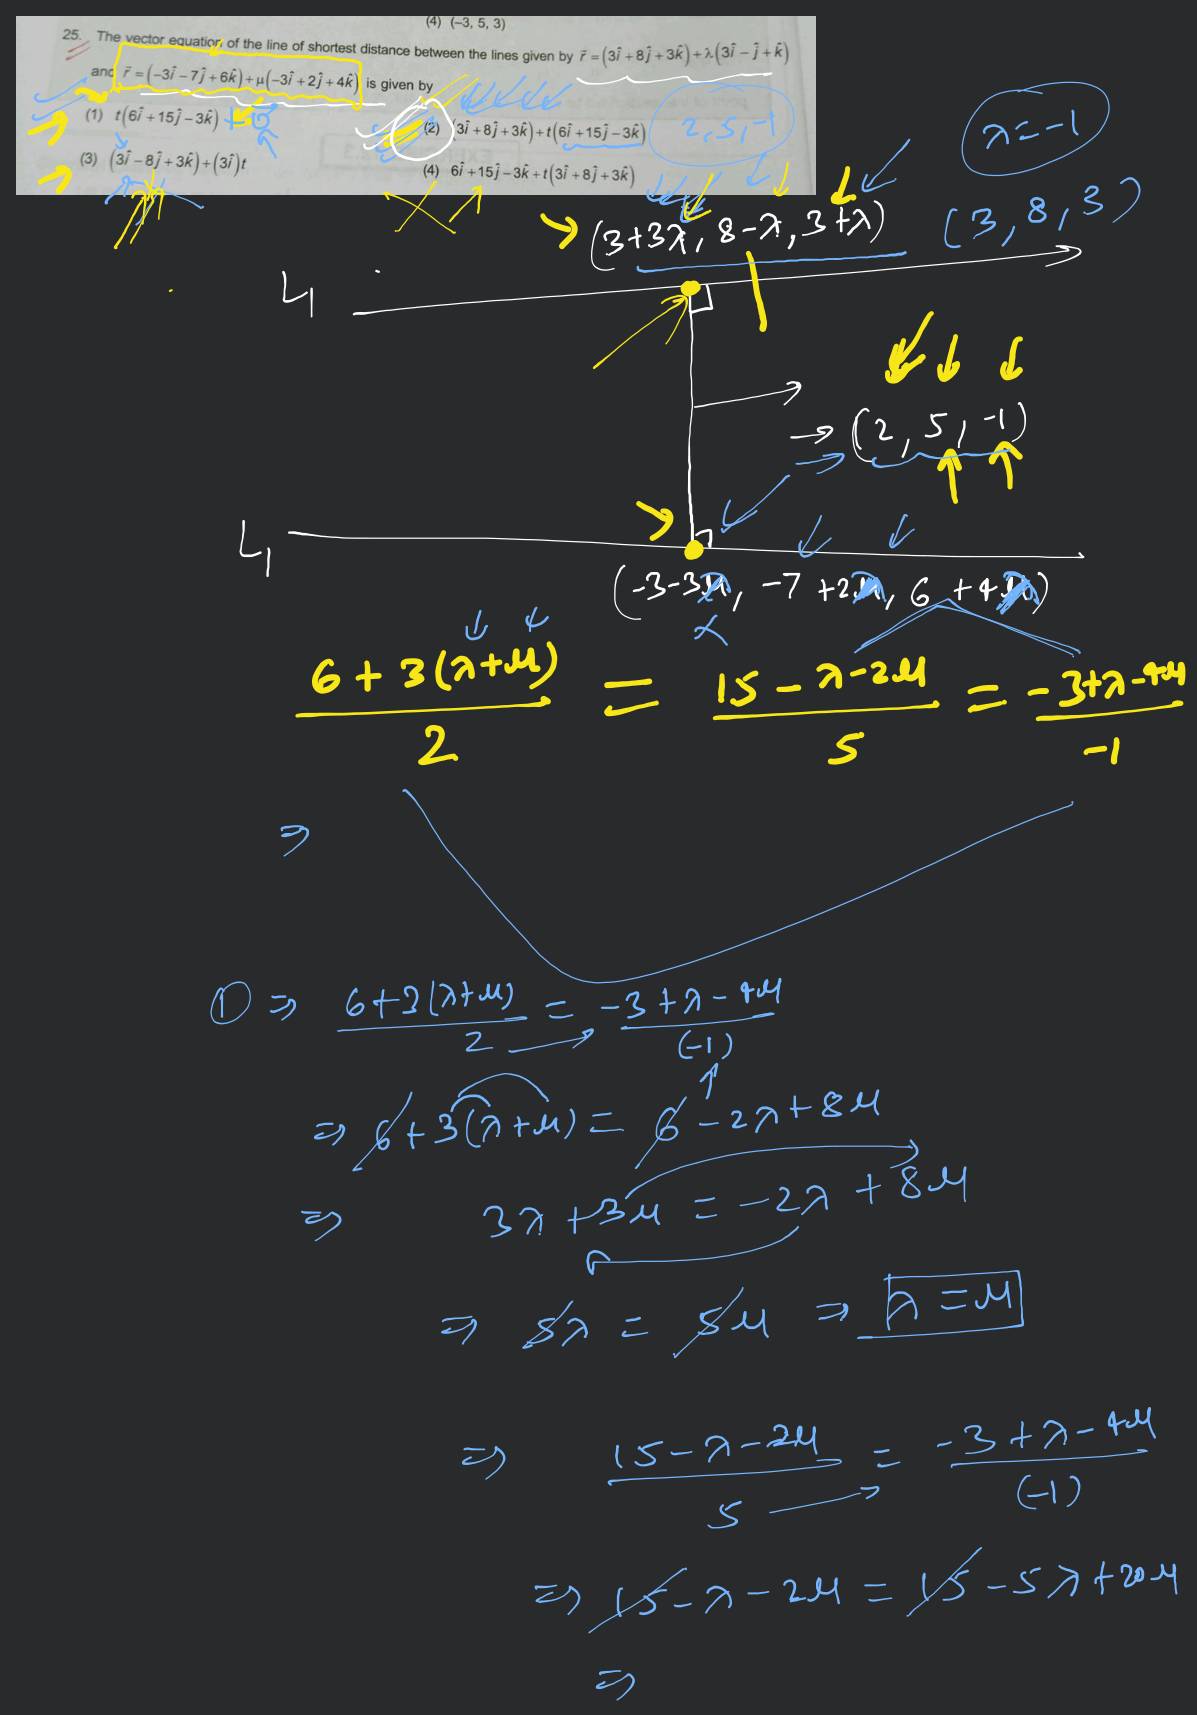 (4) (-3, 5, 3)
25. The vector equation of the line of shortest distance between the lines given by r̄ = (3î + 8ĵ + 3k̂) + λ(3î − ĵ + k̂)
and r̄ = (−3î − 7ĵ + 6k̂) + μ(−3î + 2ĵ + 4k̂) is given by
(1) t(6î + 15ĵ − 3k̂) + 0
(2) (3î + 8ĵ + 3k̂) + t(6î + 15ĵ − 3k̂)
2, 5, -1
λ = -1
(3) (3î − 8ĵ + 3k̂) + (3î)t
(4) 6î + 15ĵ − 3k̂ + t(3î + 8ĵ + 3k̂)
(3+3λ, 8-λ, 3+λ) (3, 8, 3)
L1
→ (2, 5, -1)
L1
(-3-3λ, -7+2λ, 6+4λ)
6+3(λ+μ)/2 = 15-λ-2μ/5 = -3+λ-4μ/-1
⇒
① ⇒ 6+3(λ+μ)/2 = -3+λ-4μ/(-1)
⇒ 6+3(λ+μ) = 6-2λ+8μ
⇒ 3λ+3μ = -2λ+8μ
⇒ 5λ = 5μ ⇒ λ = μ
⇒ 15-λ-2μ/5 = -3+λ-4μ/(-1)
⇒ 15-λ-2μ = 15-5λ+20μ
⇒